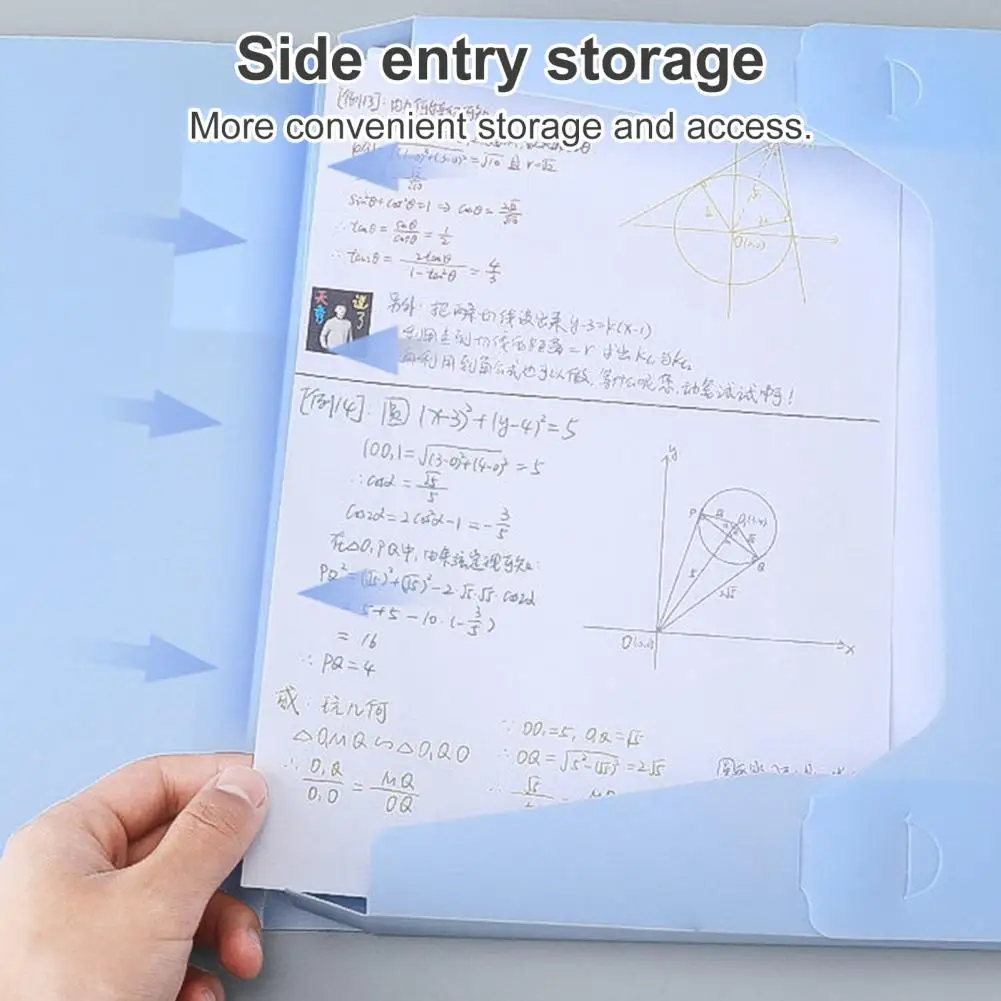 Side entry storage
More convenient storage and access.
[例13]:
= √10 且 r=√2
sin²θ+cos²θ=1 ⇒ cosθ=
∴ tanθ = sinθ/cosθ = 1/2
∴ tan2θ = 2tanθ/1-tan²θ = 4/3
另外: 把两条切线设出来 y-3=k(x-1)
利用 到切线的距离=r 求出k₁与k₂
利用到角公式也可以做, 等什么呢您, 动笔试试啊!
[例14]: 圆 (x-3)²+(y-4)²=5
|OO₁|=√(3-0)²+(4-0)² = 5
∴cosα = √5/5
cos2α=2cos²α-1=-3/5
在△O₁PQ中, 由余弦定理可知:
PQ²=(√5)²+(√5)²-2·√5·√5·cos2α
= 5+5-10·(-3/5)
= 16
∴ PQ=4
y
P
Q
5
2√5
O(0,0)
x
或: 玩几何
△O₁MQ∽△O₁QO
∴ O₁Q/O₁O = MQ/OQ
∵ OO₁=5, O₁Q=√5
∴ OQ=√5²-(√5)² = 2√5